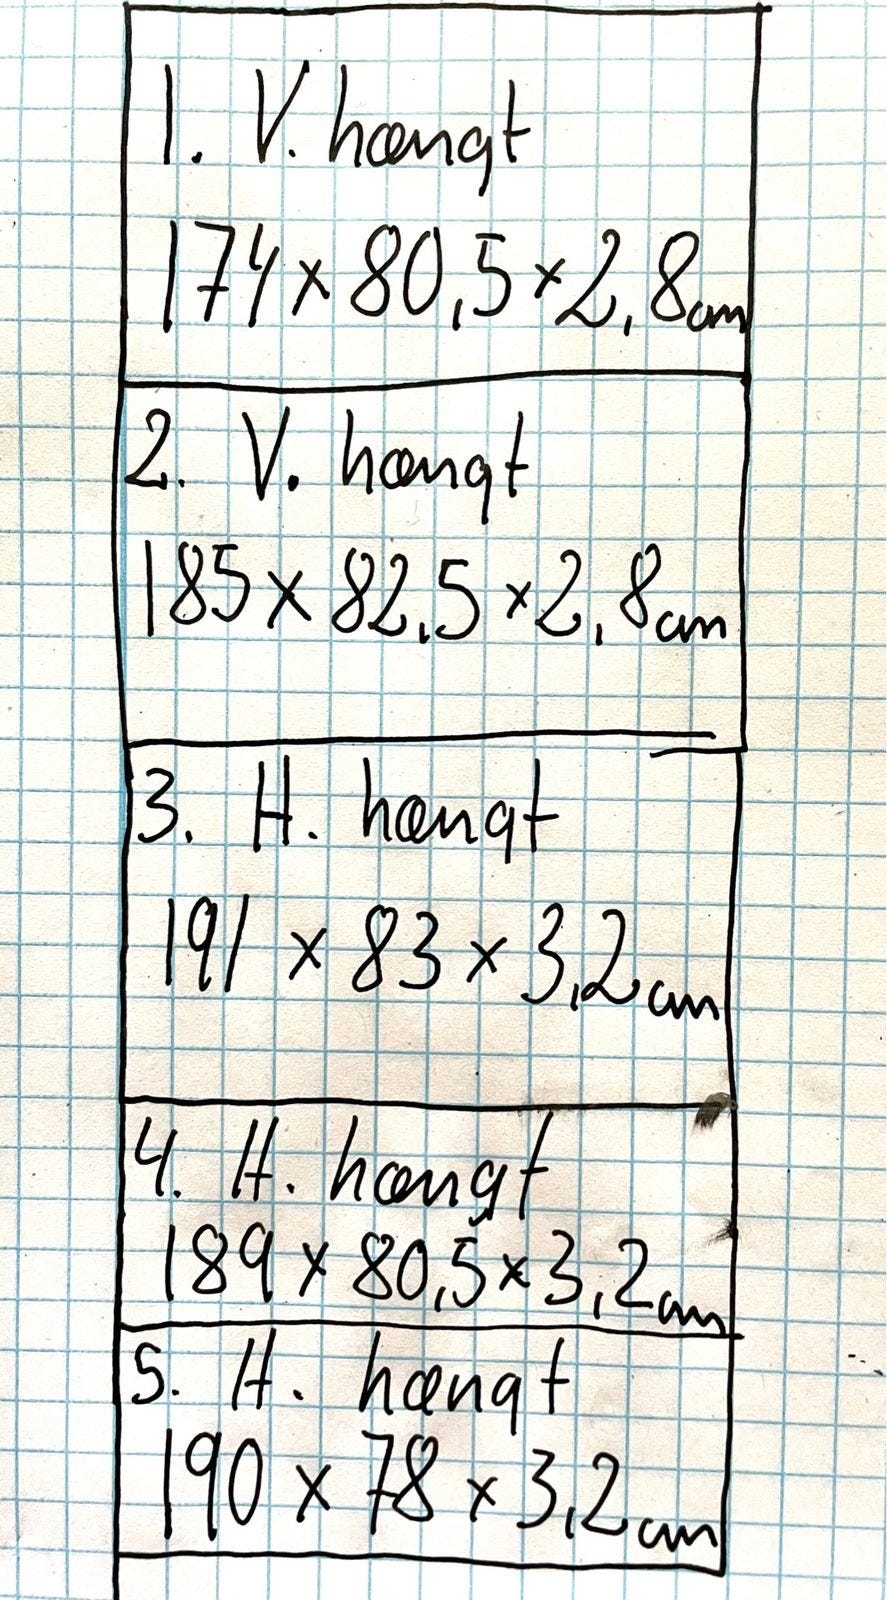 1. V. hængt
174 x 80,5 x 2,8cm
2. V. hængt
185 x 82,5 x 2,8cm
3. H. hængt
191 x 83 x 3,2cm
4. H. hængt
189 x 80,5 x 3,2cm
5. H. hængt
190 x 78 x 3,2cm